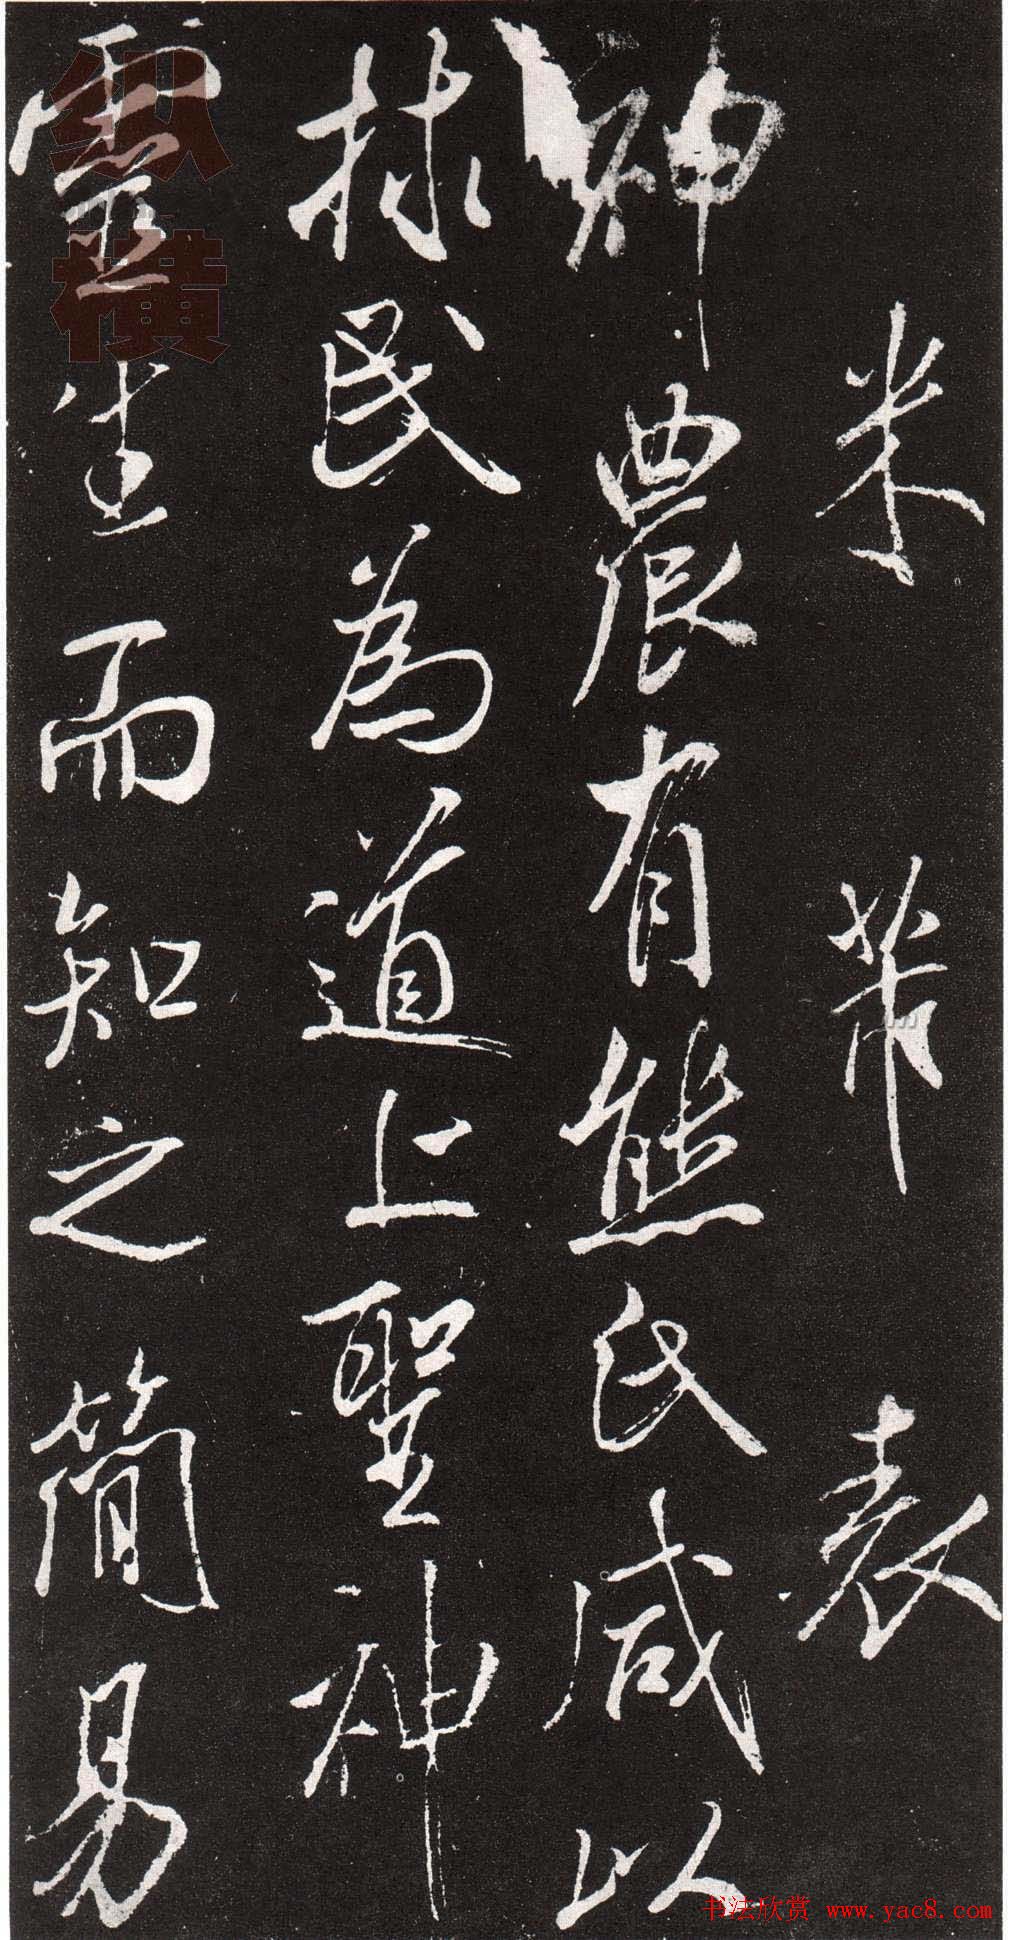 米芾表
神農有熊氏咸以
捄民為道上聖神
靈生而知之簡易
纵横
书法欣赏 www.yac8.com